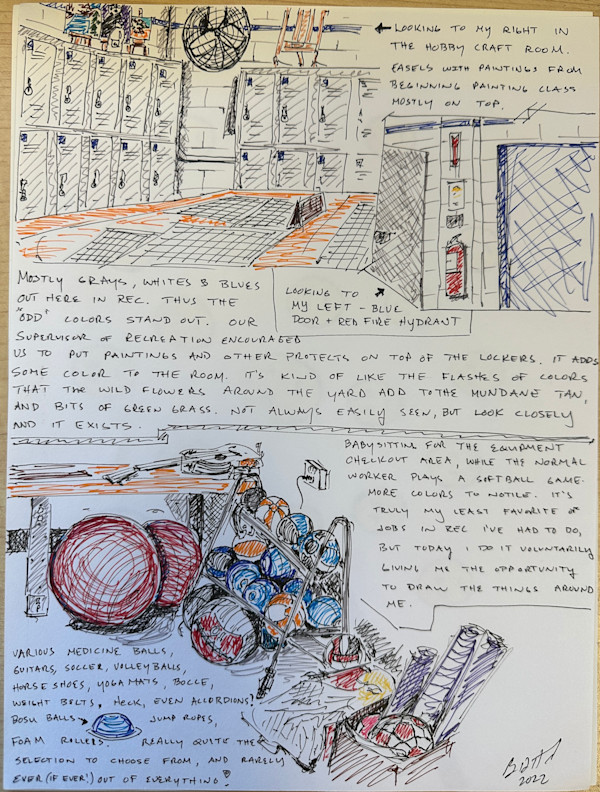 ← LOOKING TO MY RIGHT IN
THE HOBBY CRAFT ROOM.
EASELS WITH PAINTINGS FROM
BEGINNING PAINTING CLASS
MOSTLY ON TOP.
MOSTLY GRAYS, WHITES & BLUES
OUT HERE IN REC. THUS THE
"ODD" COLORS STAND OUT. OUR
SUPERVISOR OF RECREATION ENCOURAGED
US TO PUT PAINTINGS AND OTHER PROTECTS ON TOP OF THE LOCKERS. IT ADDS
SOME COLOR TO THE ROOM. IT'S KIND OF LIKE THE FLASHES OF COLORS
THAT THE WILD FLOWERS AROUND THE YARD ADD TO THE MUNDANE TAN,
AND BITS OF GREEN GRASS. NOT ALWAYS EASILY SEEN, BUT LOOK CLOSELY
AND IT EXISTS.
LOOKING TO
MY LEFT - BLUE
DOOR + RED FIRE HYDRANT
BABYSITTING FOR THE EQUIPMENT
CHECKOUT AREA, WHILE THE NORMAL
WORKER PLAYS A SOFTBALL GAME.
MORE COLORS TO NOTICE. IT'S
TRULY MY LEAST FAVORITE OF
JOBS IN REC I'VE HAD TO DO,
BUT TODAY I DO IT VOLUNTARILY
GIVING ME THE OPPORTUNITY
TO DRAW THE THINGS AROUND
ME.
VARIOUS MEDICINE BALLS,
GUITARS, SOCCER, VOLLEY BALLS,
HORSE SHOES, YOGA MATS, BOCCE,
WEIGHT BELTS, HECK, EVEN ACCORDIONS!
BOSU BALLS → JUMP ROPES,
FOAM ROLLERS. REALLY QUITE THE
SELECTION TO CHOOSE FROM, AND RARELY
EVER (IF EVER!) OUT OF EVERYTHING!
2022